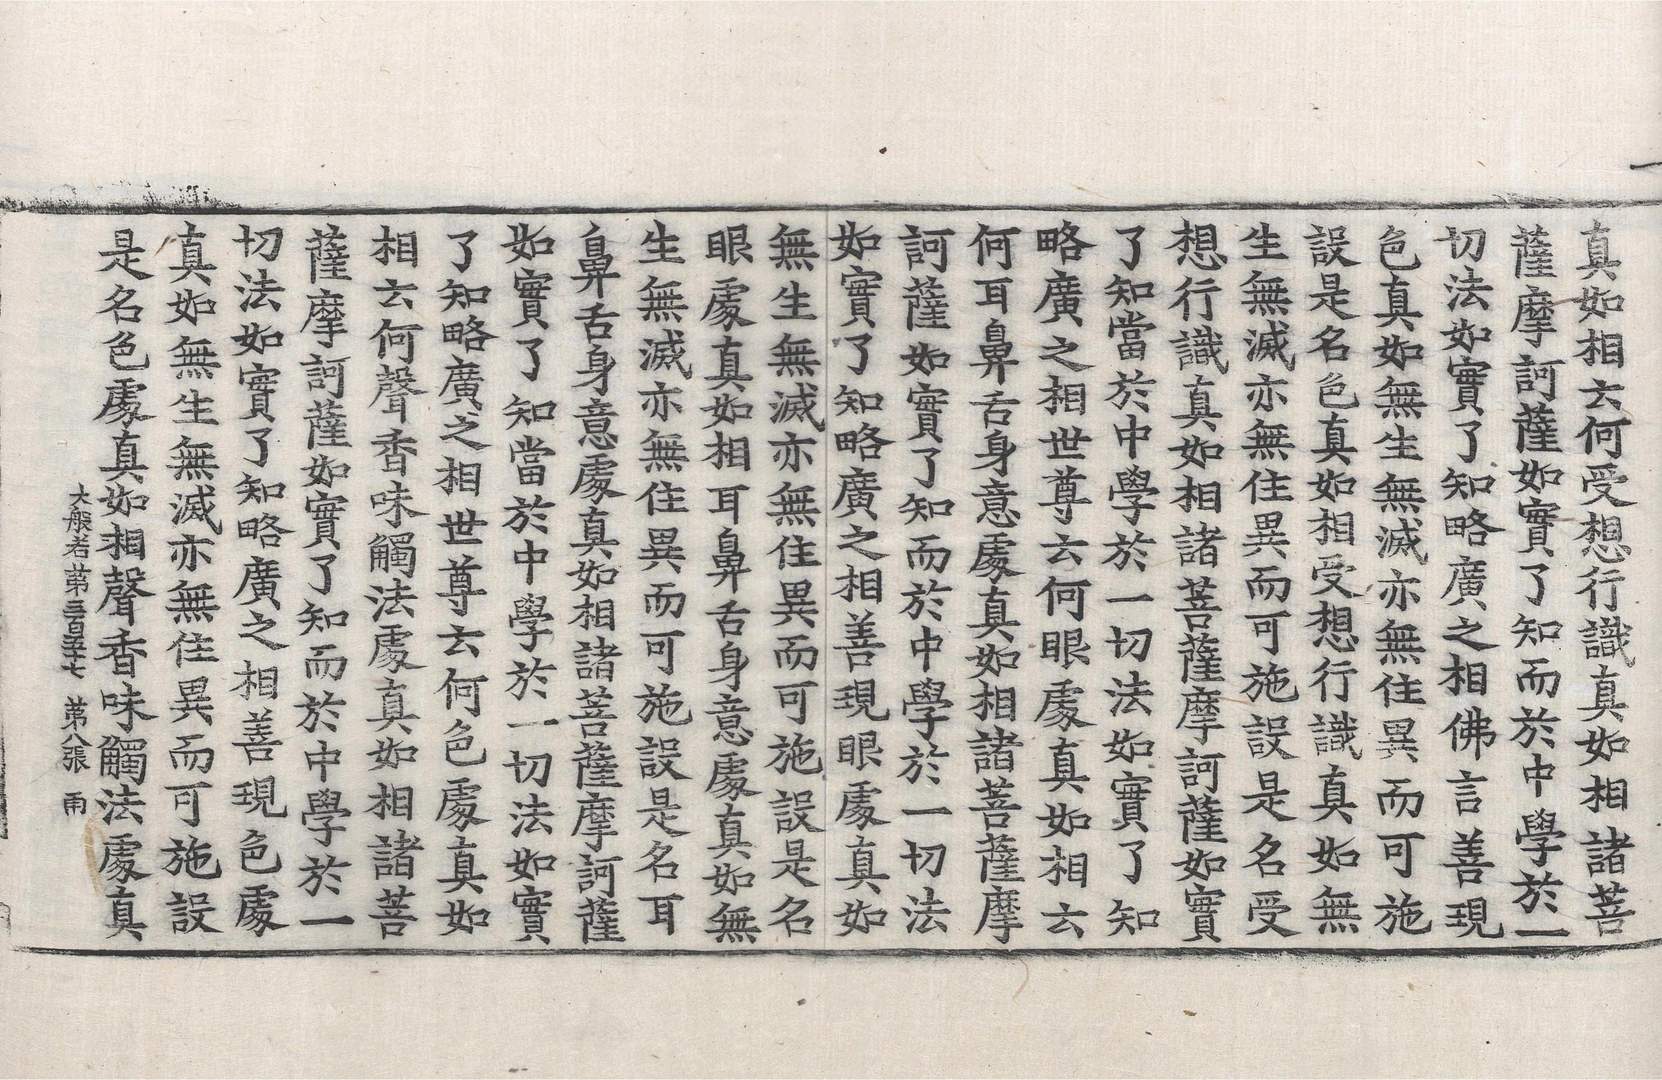 真如相云何受想行識真如相諸菩
薩摩訶薩如實了知而於中學於一
切法如實了知略廣之相佛言善現
色真如無生無滅亦無住異而可施
設是名色真如相受想行識真如無
生無滅亦無住異而可施設是名受
想行識真如相諸菩薩摩訶薩如實
了知當於中學於一切法如實了知
略廣之相世尊云何眼處真如相云
何耳鼻舌身意處真如相諸菩薩摩
訶薩如實了知而於中學於一切法
如實了知略廣之相善現眼處真如
無生無滅亦無住異而可施設是名
眼處真如相耳鼻舌身意處真如無
生無滅亦無住異而可施設是名耳
鼻舌身意處真如相諸菩薩摩訶薩
如實了知當於中學於一切法如實
了知略廣之相世尊云何色處真如
相云何聲香味觸法處真如相諸菩
薩摩訶薩如實了知而於中學於一
切法如實了知略廣之相善現色處
真如無生無滅亦無住異而可施設
是名色處真如相聲香味觸法處真
大般若第三百五十七 第八張 雨